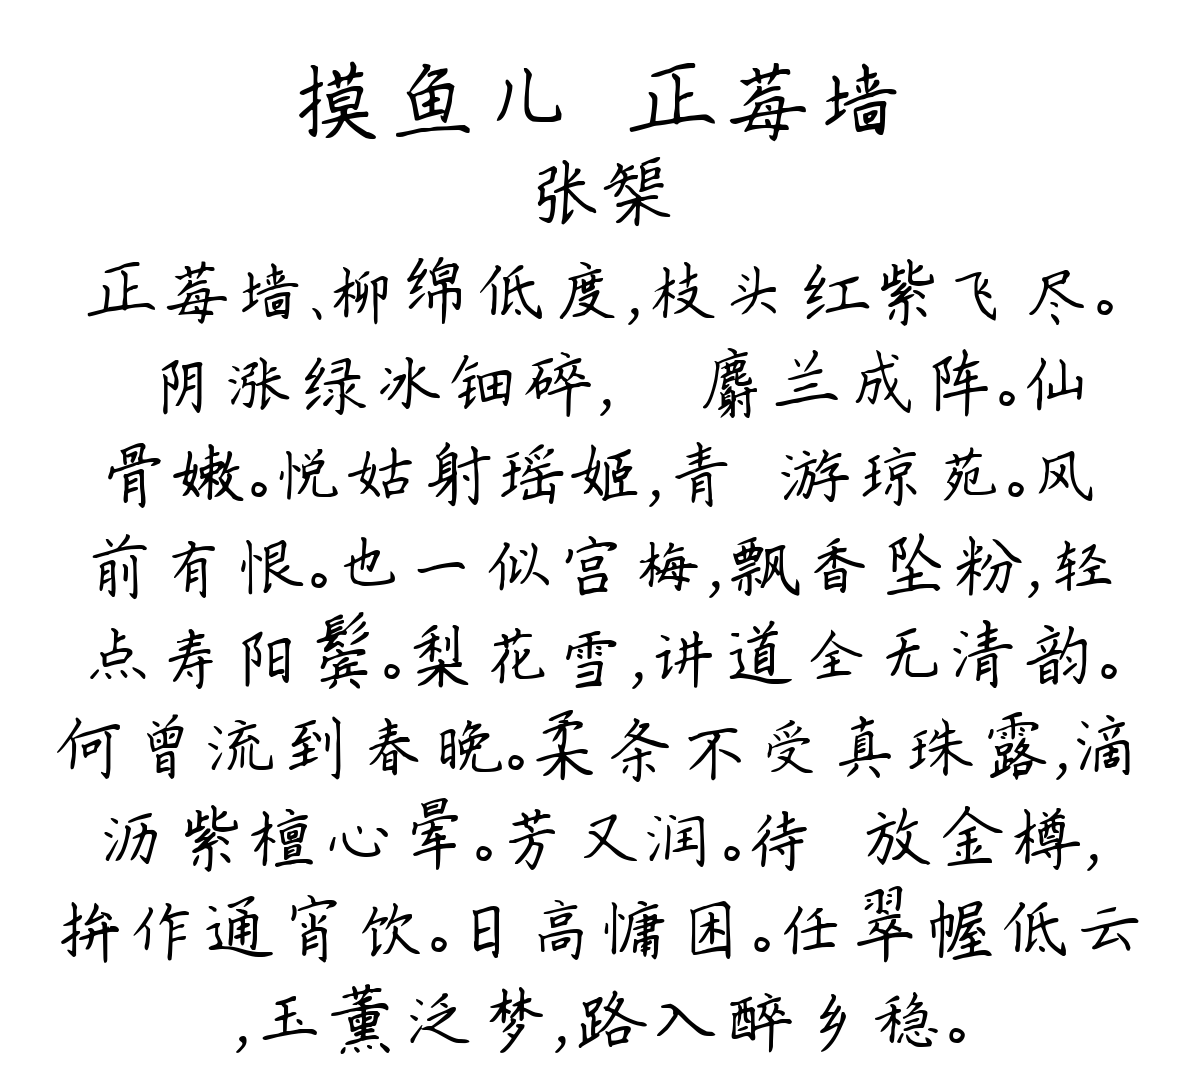 摸鱼儿 正莓墙
张榘
正莓墙、柳绵低度,枝头红紫飞 尽。
阴涨绿冰钿碎, 麝兰成阵。仙
骨嫩。悦姑射瑶姬,青 游琼苑。风
前有恨。也一似宫梅,飘香坠粉,轻
点寿阳鬓。梨花雪,讲道全无清韵。
何曾流到春晚。柔条不受真珠露,滴
沥紫檀心晕。芳又润。待 放金樽,
拚作通宵饮。日高慵困。任翠幄低云
,玉薰泛梦,路入醉乡稳。